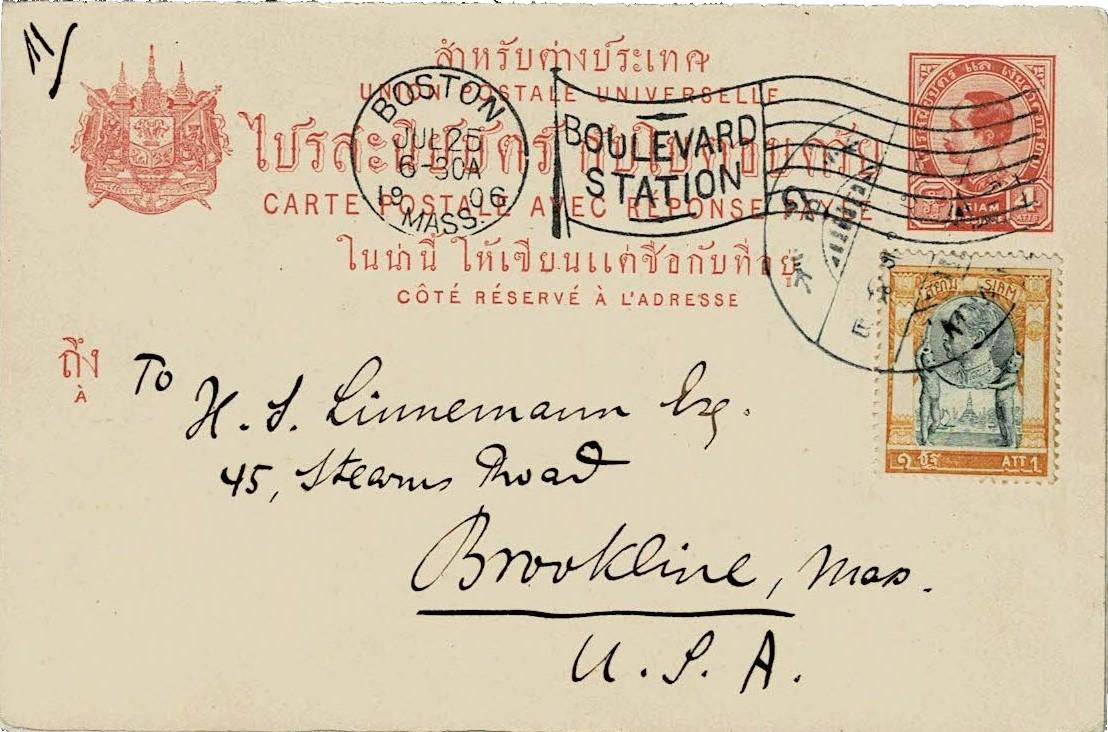 11/
สำหรับต่างประเทศ
UNION POSTALE UNIVERSELLE
ไปรสะนียบัตร
CARTE POSTALE AVEC RÉPONSE PAYÉE
ในน่านี้ ให้เขียนแต่ชื่อกับที่อยู่
CÔTÉ RÉSERVÉ À L'ADRESSE
BOSTON
JUL 25
6-30A
19 06
MASS.
BOULEVARD
STATION
SIAM
ATTS
สยาม SIAM
ATT 1
ถึง
À
To
H. S. Linnemann Esq.
45, Stearns Road
Brookline, Mas.
U. S. A.